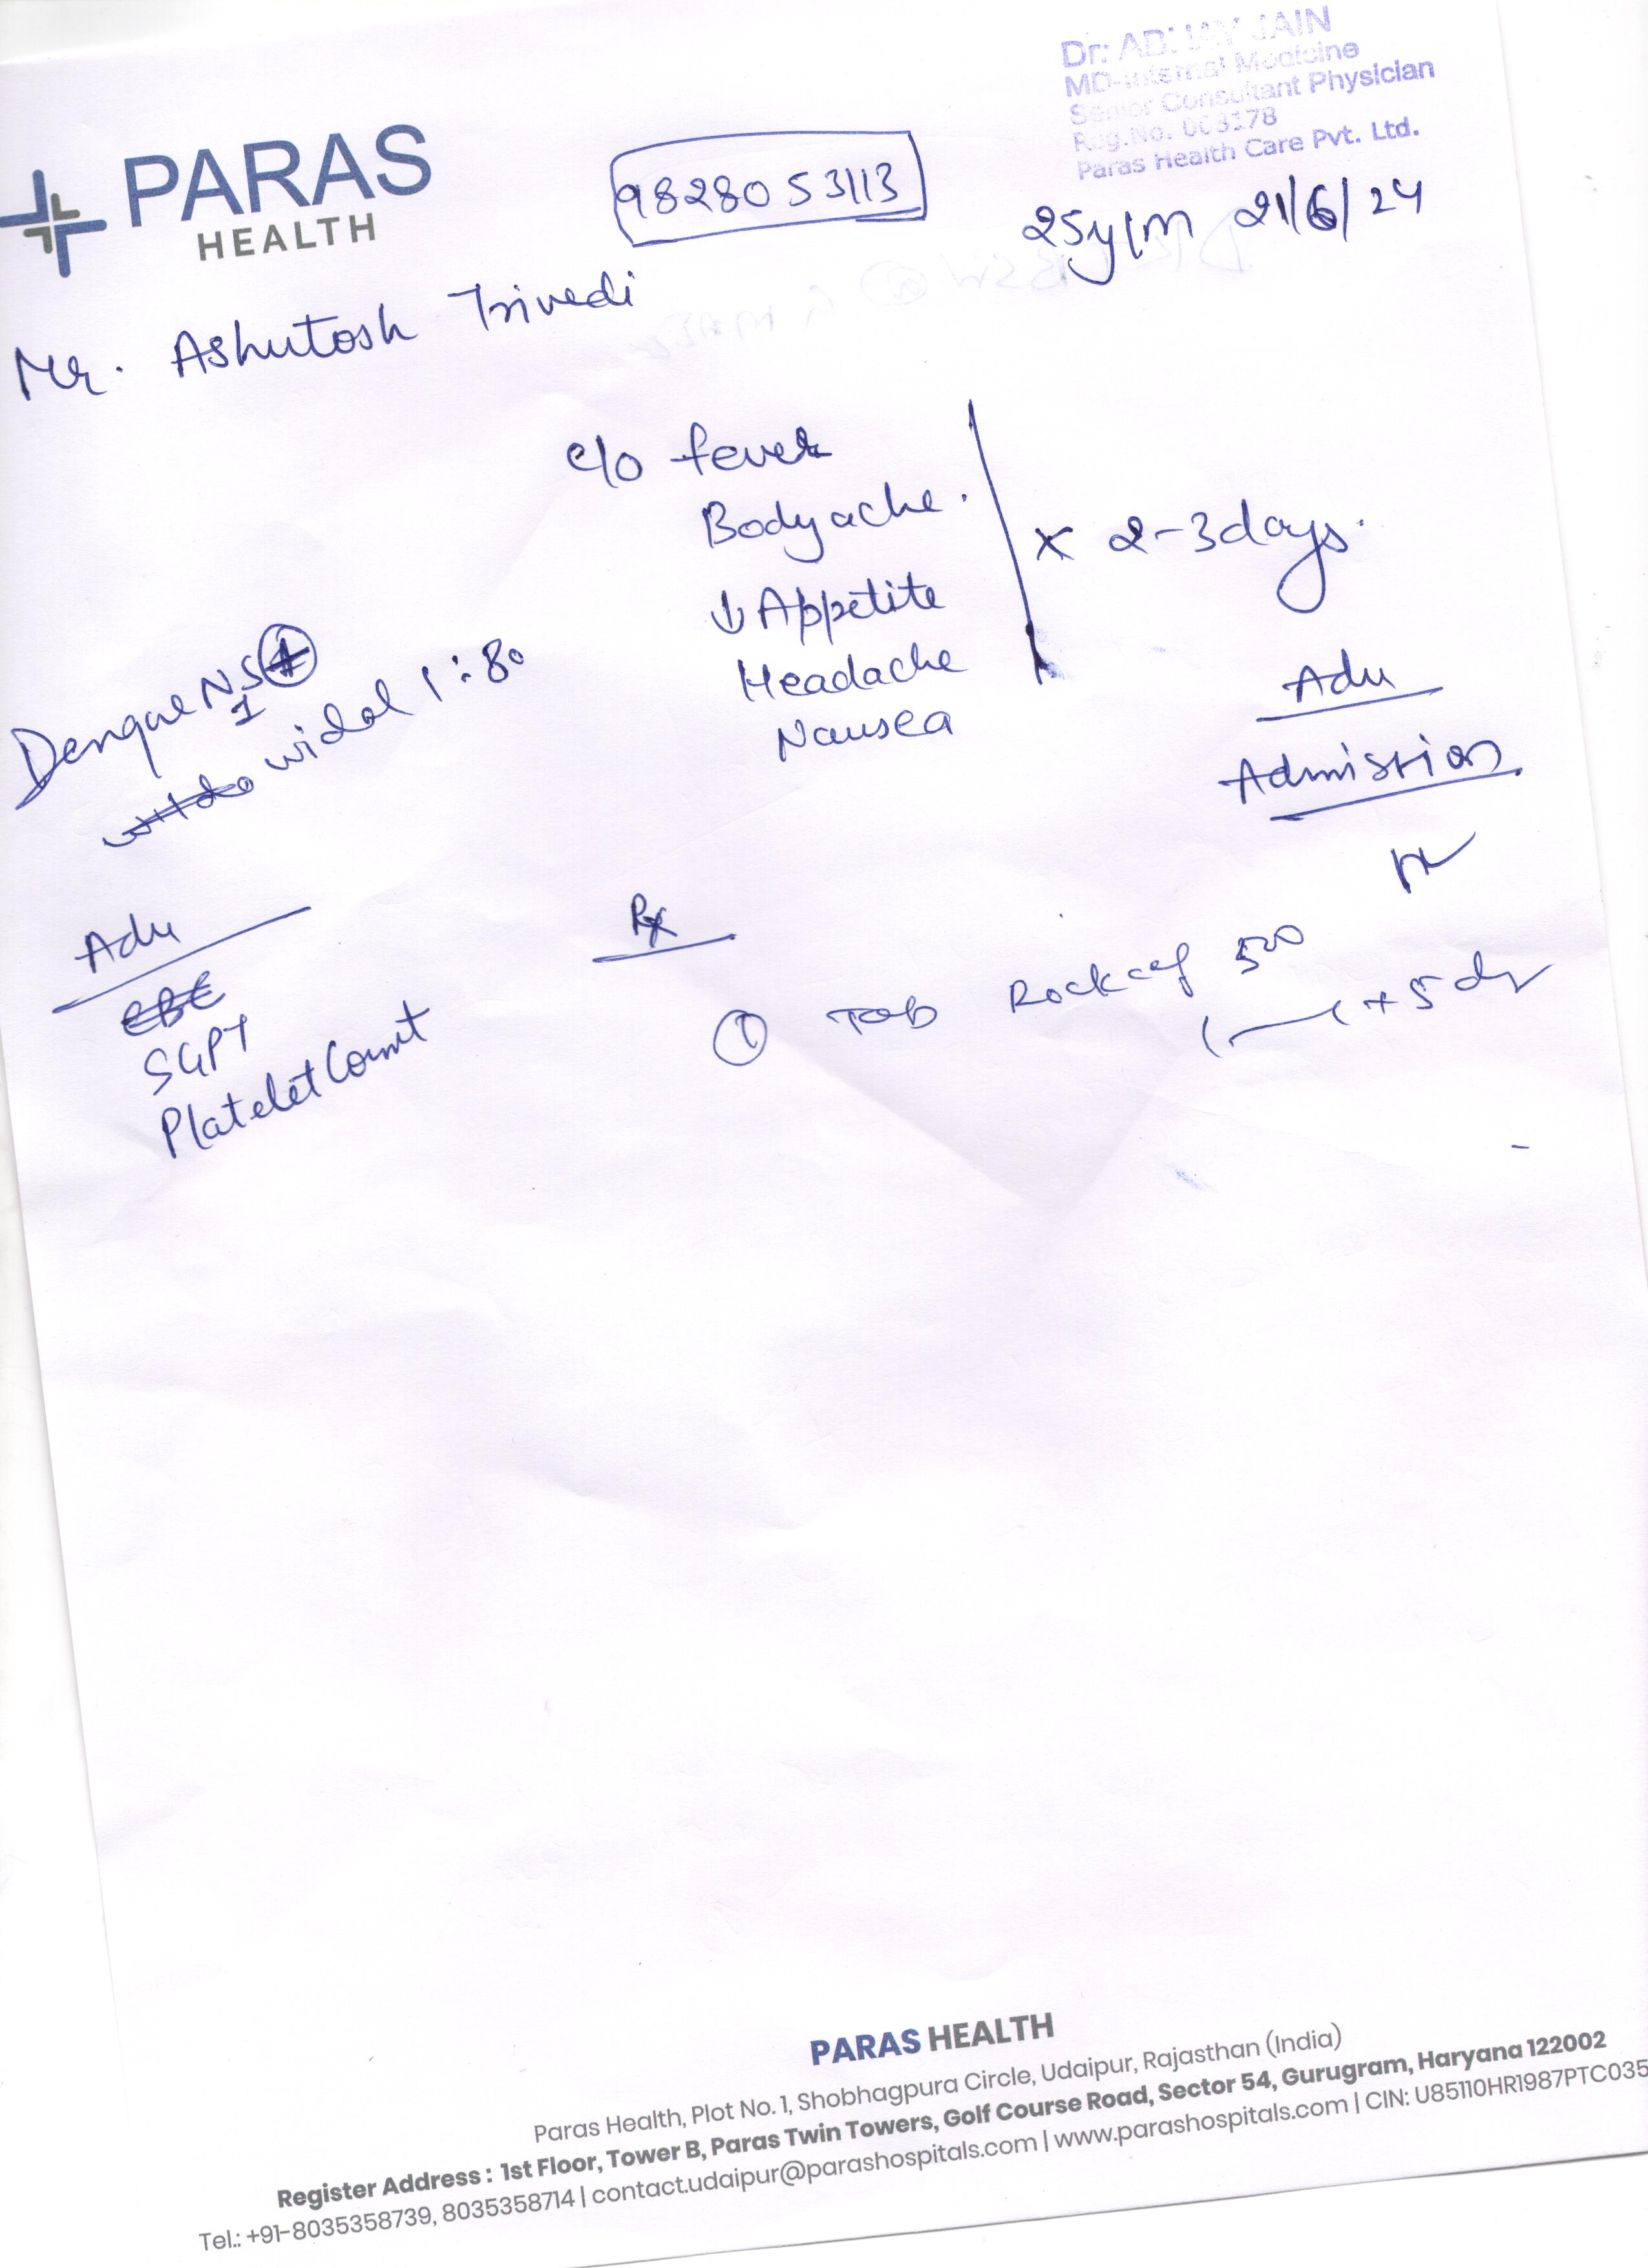 Dr. ABHAY JAIN
MD-Internal Medicine
Senior Consultant Physician
Reg.No. 008178
Paras Health Care Pvt. Ltd.
PARAS
HEALTH
9828053113
25y/m 21/6/24
Mr. Ashutosh Trivedi
c/o fever
Bodyache.
↓ Appetite
Headache
Nausea
x 2-3 days.
Dengue NS1 +
widal 1:80
Adv
Admission
Adv
CBC
SGPT
Platelet Count
Rx
① Tab Rockcef 500
x 5 d
PARAS HEALTH
Paras Health, Plot No. 1, Shobhagpura Circle, Udaipur, Rajasthan (India)
Register Address : 1st Floor, Tower B, Paras Twin Towers, Golf Course Road, Sector 54, Gurugram, Haryana 122002
Tel.: +91-8035358739, 8035358714 | contact.udaipur@parashospitals.com | www.parashospitals.com | CIN: U85110HR1987PTC035